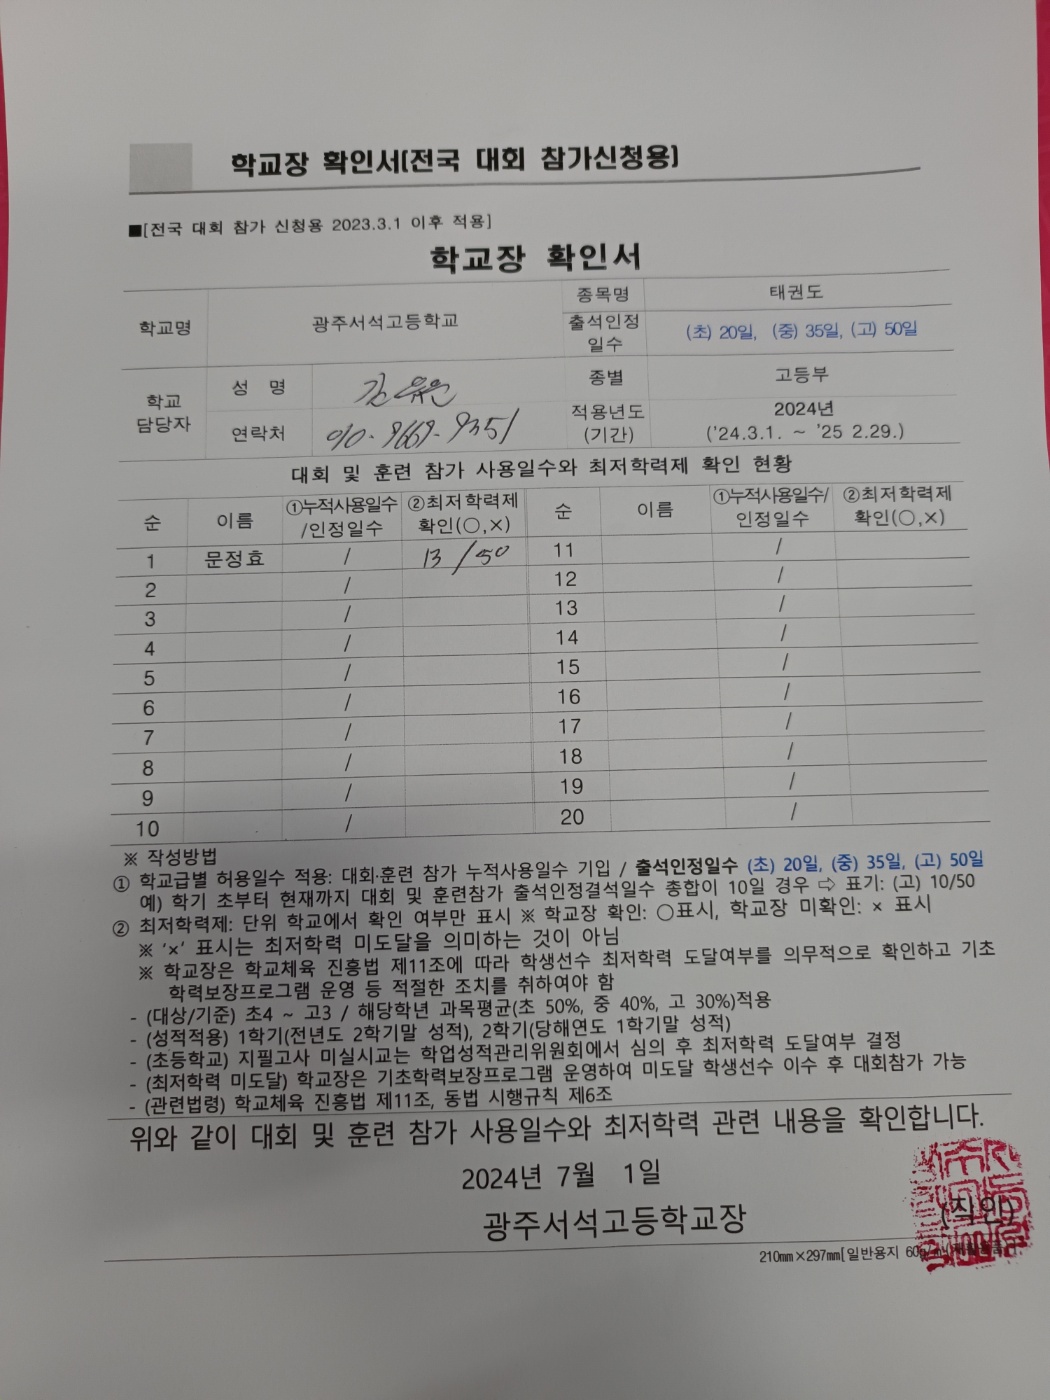 학교장 확인서(전국 대회 참가신청용)
■[전국 대회 참가 신청용 2023.3.1 이후 적용]
학교장 확인서
학교명 광주서석고등학교 종목명 태권도
출석인정 일수 (초) 20일, (중) 35일, (고) 50일
학교 담당자 성 명 종별 고등부
연락처 적용년도 (기간) 2024년
('24.3.1. ~ '25 2.29.)
대회 및 훈련 참가 사용일수와 최저학력제 확인 현황
순 이름 ①누적사용일수 /인정일수 ②최저학력제 확인(○,×) 순 이름 ①누적사용일수/ 인정일수 ②최저학력제 확인(○,×)
1 문정효 / 13/50 11 /
2 / 12 /
3 / 13 /
4 / 14 /
5 / 15 /
6 / 16 /
7 / 17 /
8 / 18 /
9 / 19 /
10 / 20 /
※ 작성방법
① 학교급별 허용일수 적용: 대회·훈련 참가 누적사용일수 기입 / 출석인정일수 (초) 20일, (중) 35일, (고) 50일
예) 학기 초부터 현재까지 대회 및 훈련참가 출석인정결석일수 총합이 10일 경우 ⇨ 표기: (고) 10/50
② 최저학력제: 단위 학교에서 확인 여부만 표시 ※ 학교장 확인: ○표시, 학교장 미확인: × 표시
※ '×' 표시는 최저학력 미도달을 의미하는 것이 아님
※ 학교장은 학교체육 진흥법 제11조에 따라 학생선수 최저학력 도달여부를 의무적으로 확인하고 기초
학력보장프로그램 운영 등 적절한 조치를 취하여야 함
- (대상/기준) 초4 ~ 고3 / 해당학년 과목평균(초 50%, 중 40%, 고 30%)적용
- (성적적용) 1학기(전년도 2학기말 성적), 2학기(당해연도 1학기말 성적)
- (초등학교) 지필고사 미실시교는 학업성적관리위원회에서 심의 후 최저학력 도달여부 결정
- (최저학력 미도달) 학교장은 기초학력보장프로그램 운영하여 미도달 학생선수 이수 후 대회참가 가능
- (관련법령) 학교체육 진흥법 제11조, 동법 시행규칙 제6조
위와 같이 대회 및 훈련 참가 사용일수와 최저학력 관련 내용을 확인합니다.
2024년 7월 1일
광주서석고등학교장 (직인)
210㎜×297㎜[일반용지